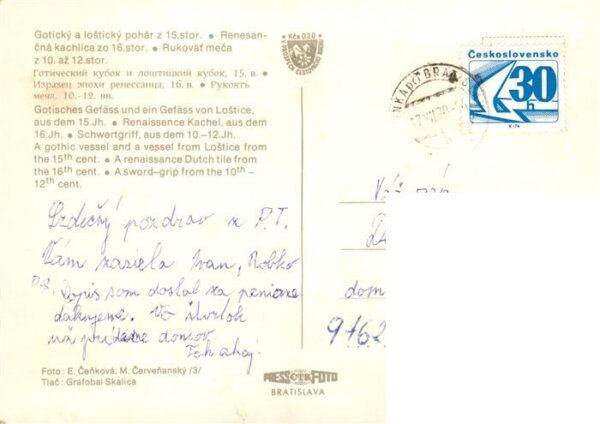 Gotický a loštický pohár z 15.stor. • Renesan-
čná kachlica zo 16.stor. • Rukoväť meča
z 10. až 12.stor.
Готический кубок и лоштицкий кубок, 15. в. •
Изразец эпохи ренессанца, 16. в. • Рукоять
меча, 10.-12. вв.
Gotisches Gefäss und ein Gefäss von Loštice,
aus dem 15.Jh. • Renaissance Kachel, aus dem
16.Jh. • Schwertgriff, aus dem 10.—12.Jh.
A gothic vessel and a vessel from Loštice from
the 15th cent. • A renaissance Dutch tile from
the 16th cent. • A sword-grip from the 10th —
12th cent.
Kčs 0,20
Československo
30 h
Srdečný pozdrav z P.T.
Vám zasiela Ivan, Robko
P.S. Dopis som dostal za peniaze
ďakujeme. Vo štvrtok
už prídeme domov
Foto : E. Čeňková, M. Červeňanský /3/
Tlač : Grafobal Skalica
PRESS ČTK FOTO
BRATISLAVA
dom